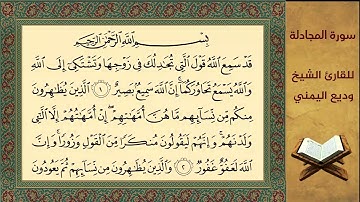 سورة المجادلة
للقارئ الشيخ
وديع اليمني
بِسْمِ ٱللَّهِ ٱلرَّحْمَٰنِ ٱلرَّحِيمِ
قَدْ سَمِعَ ٱللَّهُ قَوْلَ ٱلَّتِى تُجَٰدِلُكَ فِى زَوْجِهَا وَتَشْتَكِىٓ إِلَى ٱللَّهِ
وَٱللَّهُ يَسْمَعُ تَحَاوُرَكُمَآ إِنَّ ٱللَّهَ سَمِيعٌۢ بَصِيرٌ ١ ٱلَّذِينَ يُظَٰهِرُونَ
مِنكُم مِّن نِّسَآئِهِم مَّا هُنَّ أُمَّهَٰتِهِمْ إِنْ أُمَّهَٰتُهُمْ إِلَّا ٱلَّٰٓـِٔى
وَلَدْنَهُمْ وَإِنَّهُمْ لَيَقُولُونَ مُنكَرًا مِّنَ ٱلْقَوْلِ وَزُورًا وَإِنَّ
ٱللَّهَ لَعَفُوٌّ غَفُورٌ ٢ وَٱلَّذِينَ يُظَٰهِرُونَ مِن نِّسَآئِهِمْ ثُمَّ يَعُودُونَ